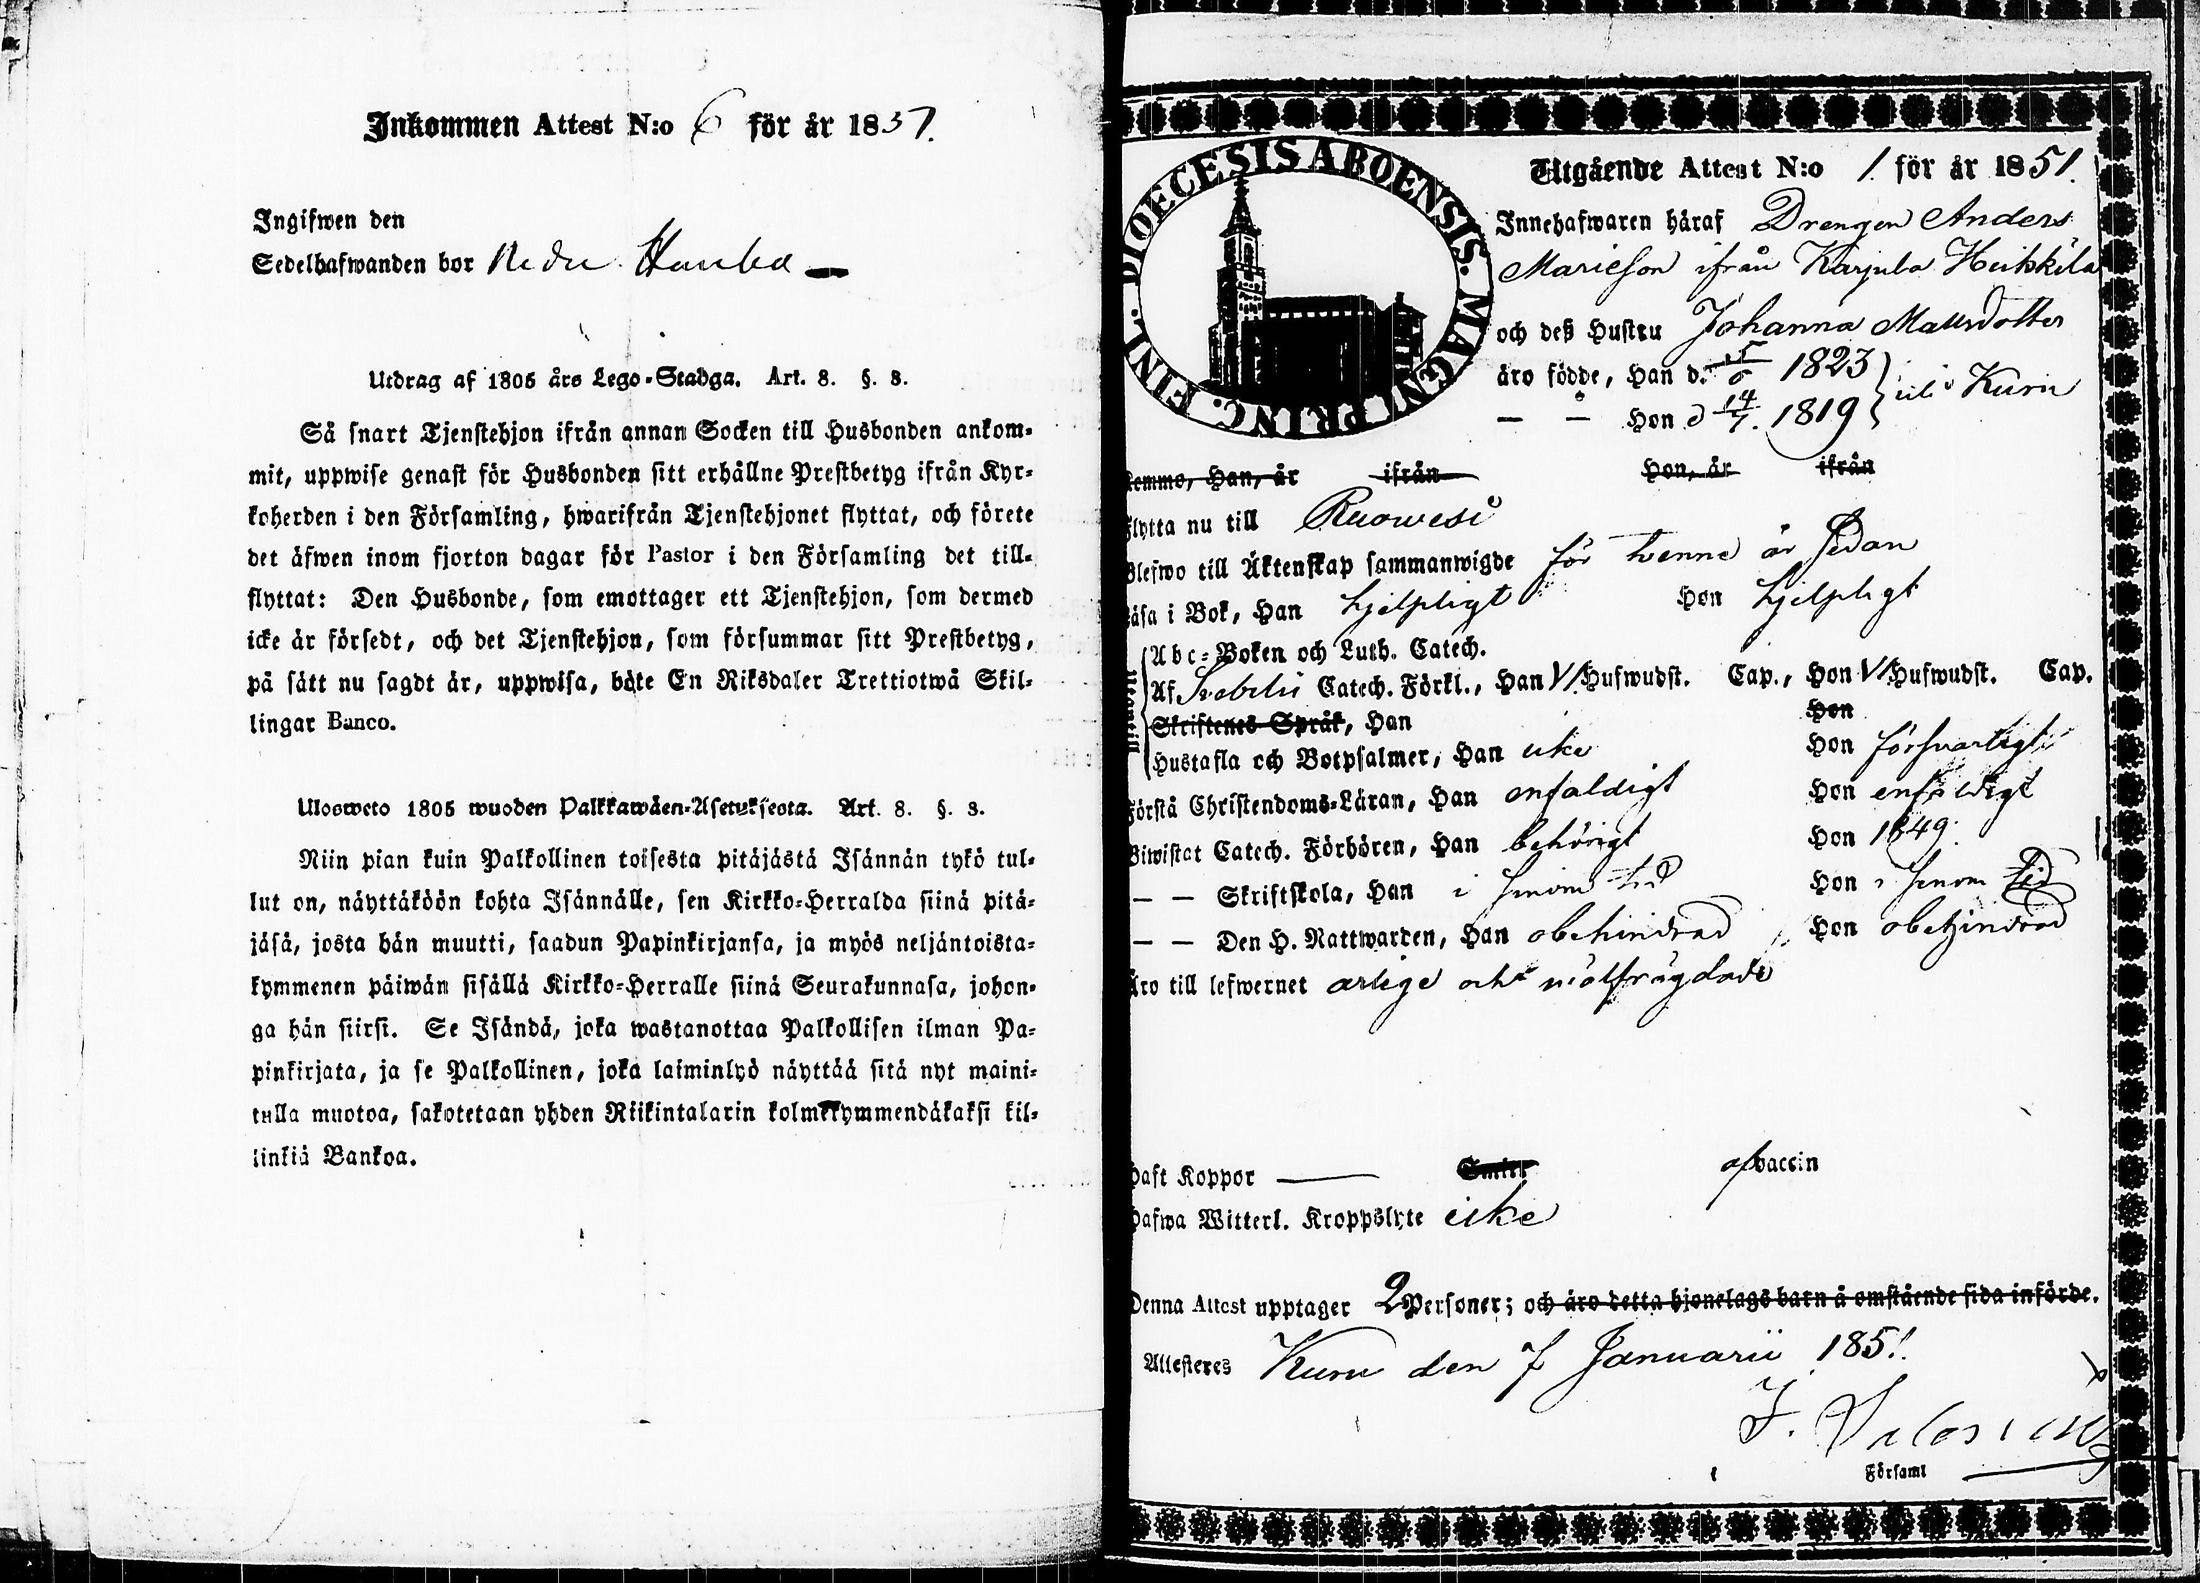 Inkommen Attest N:o 6 för år 1857.
Ingifwen den
Sedelhafwanden bor Nedre
Utdrag af 1805 års Lego-Stadga. Art. 8. §. 3.
Så snart Tjenstehjon ifrån annan Socken till Husbonden ankom-
mit, uppwise genast för Husbonden sitt erhållne Prestbetyg ifrån Kyr-
koherden i den Församling, hwarifrån Tjenstehjonet flyttat, och förete
det äfwen inom fjorton dagar för Pastor i den Församling det till-
flyttat: Den Husbonde, som emottager ett Tjenstehjon, som dermed
icke är försedt, och det Tjenstehjon, som försummar sitt Prestbetyg,
på sätt nu sagdt är, uppwisa, böte En Riksdaler Trettiotwå Skil-
lingar Banco.
Ulosweto 1805 wuoden Palkkawäen-Asetuksesta. Art. 8. §. 3.
Niin pian kuin Palkollinen toisesta pitäjästä Isännän tykö tul-
lut on, näyttäköön kohta Isännälle, sen Kirkko-Herralda siinä pitä-
jäsä, josta hän muutti, saadun Papinkirjansa, ja myös neljäntoista-
kymmenen päiwän sisällä Kirkko-Herralle siinä Seurakunnasa, johon-
ga hän siirsi. Se Isändä, joka wastanottaa Palkollisen ilman Pa-
pinkirjata, ja se Palkollinen, joka laiminlyö näyttää sitä nyt maini-
tulla muotoa, sakotetaan yhden Riikintalarin kolmekymmendäkaksi kil-
linkiä Bankoa.
DIOECESIS ABOENSIS. MAGNI PRINC. FINL.
Utgående Attest N:o 1. för år 1851.
Innehafwaren häraf Drengen Anders
Marieson ifrån Karjula Heikkilä
och deß Hustru Johanna Mattsdotter
äro födde, Han d. 1823
— — Hon d 14/7. 1819 i Kuru
komme, Han, år ifrån Hon, år ifrån
flytta nu till Ruowesi
Blefwo till Äktenskap sammanwigde för tvenne år sedan
Läsa i Bok, Han hjelpligt Hon hjelpligt
Abc-Boken och Luth. Catech.
Af Svebelii Catech. Förkl., Han VI Hufwudst. Cap., Hon VI Hufwudst. Cap.
Skriftenes Språk, Han Hon
Hustafla och Botpsalmer, Han icke Hon försvarligt
Förstå Christendoms-Läran, Han enfaldigt Hon enfaldigt
Biwistat Catech. Förhören, Han behörigt Hon 1849.
— — Skriftskola, Han i sinom tid Hon i sinom tid
— — Den H. Nattwarden, Han obehindrad Hon obehindrad
Äro till lefwernet ärlige och wälfrägdade
Haft Koppor af vaccin
Hafwa Witterl. Kroppslyte icke
Denna Attest upptager 2 Personer; och äro detta hjonelags barn å omstående sida införde.
Attesteres Kuru den 7 Januarii 1851.
Församl